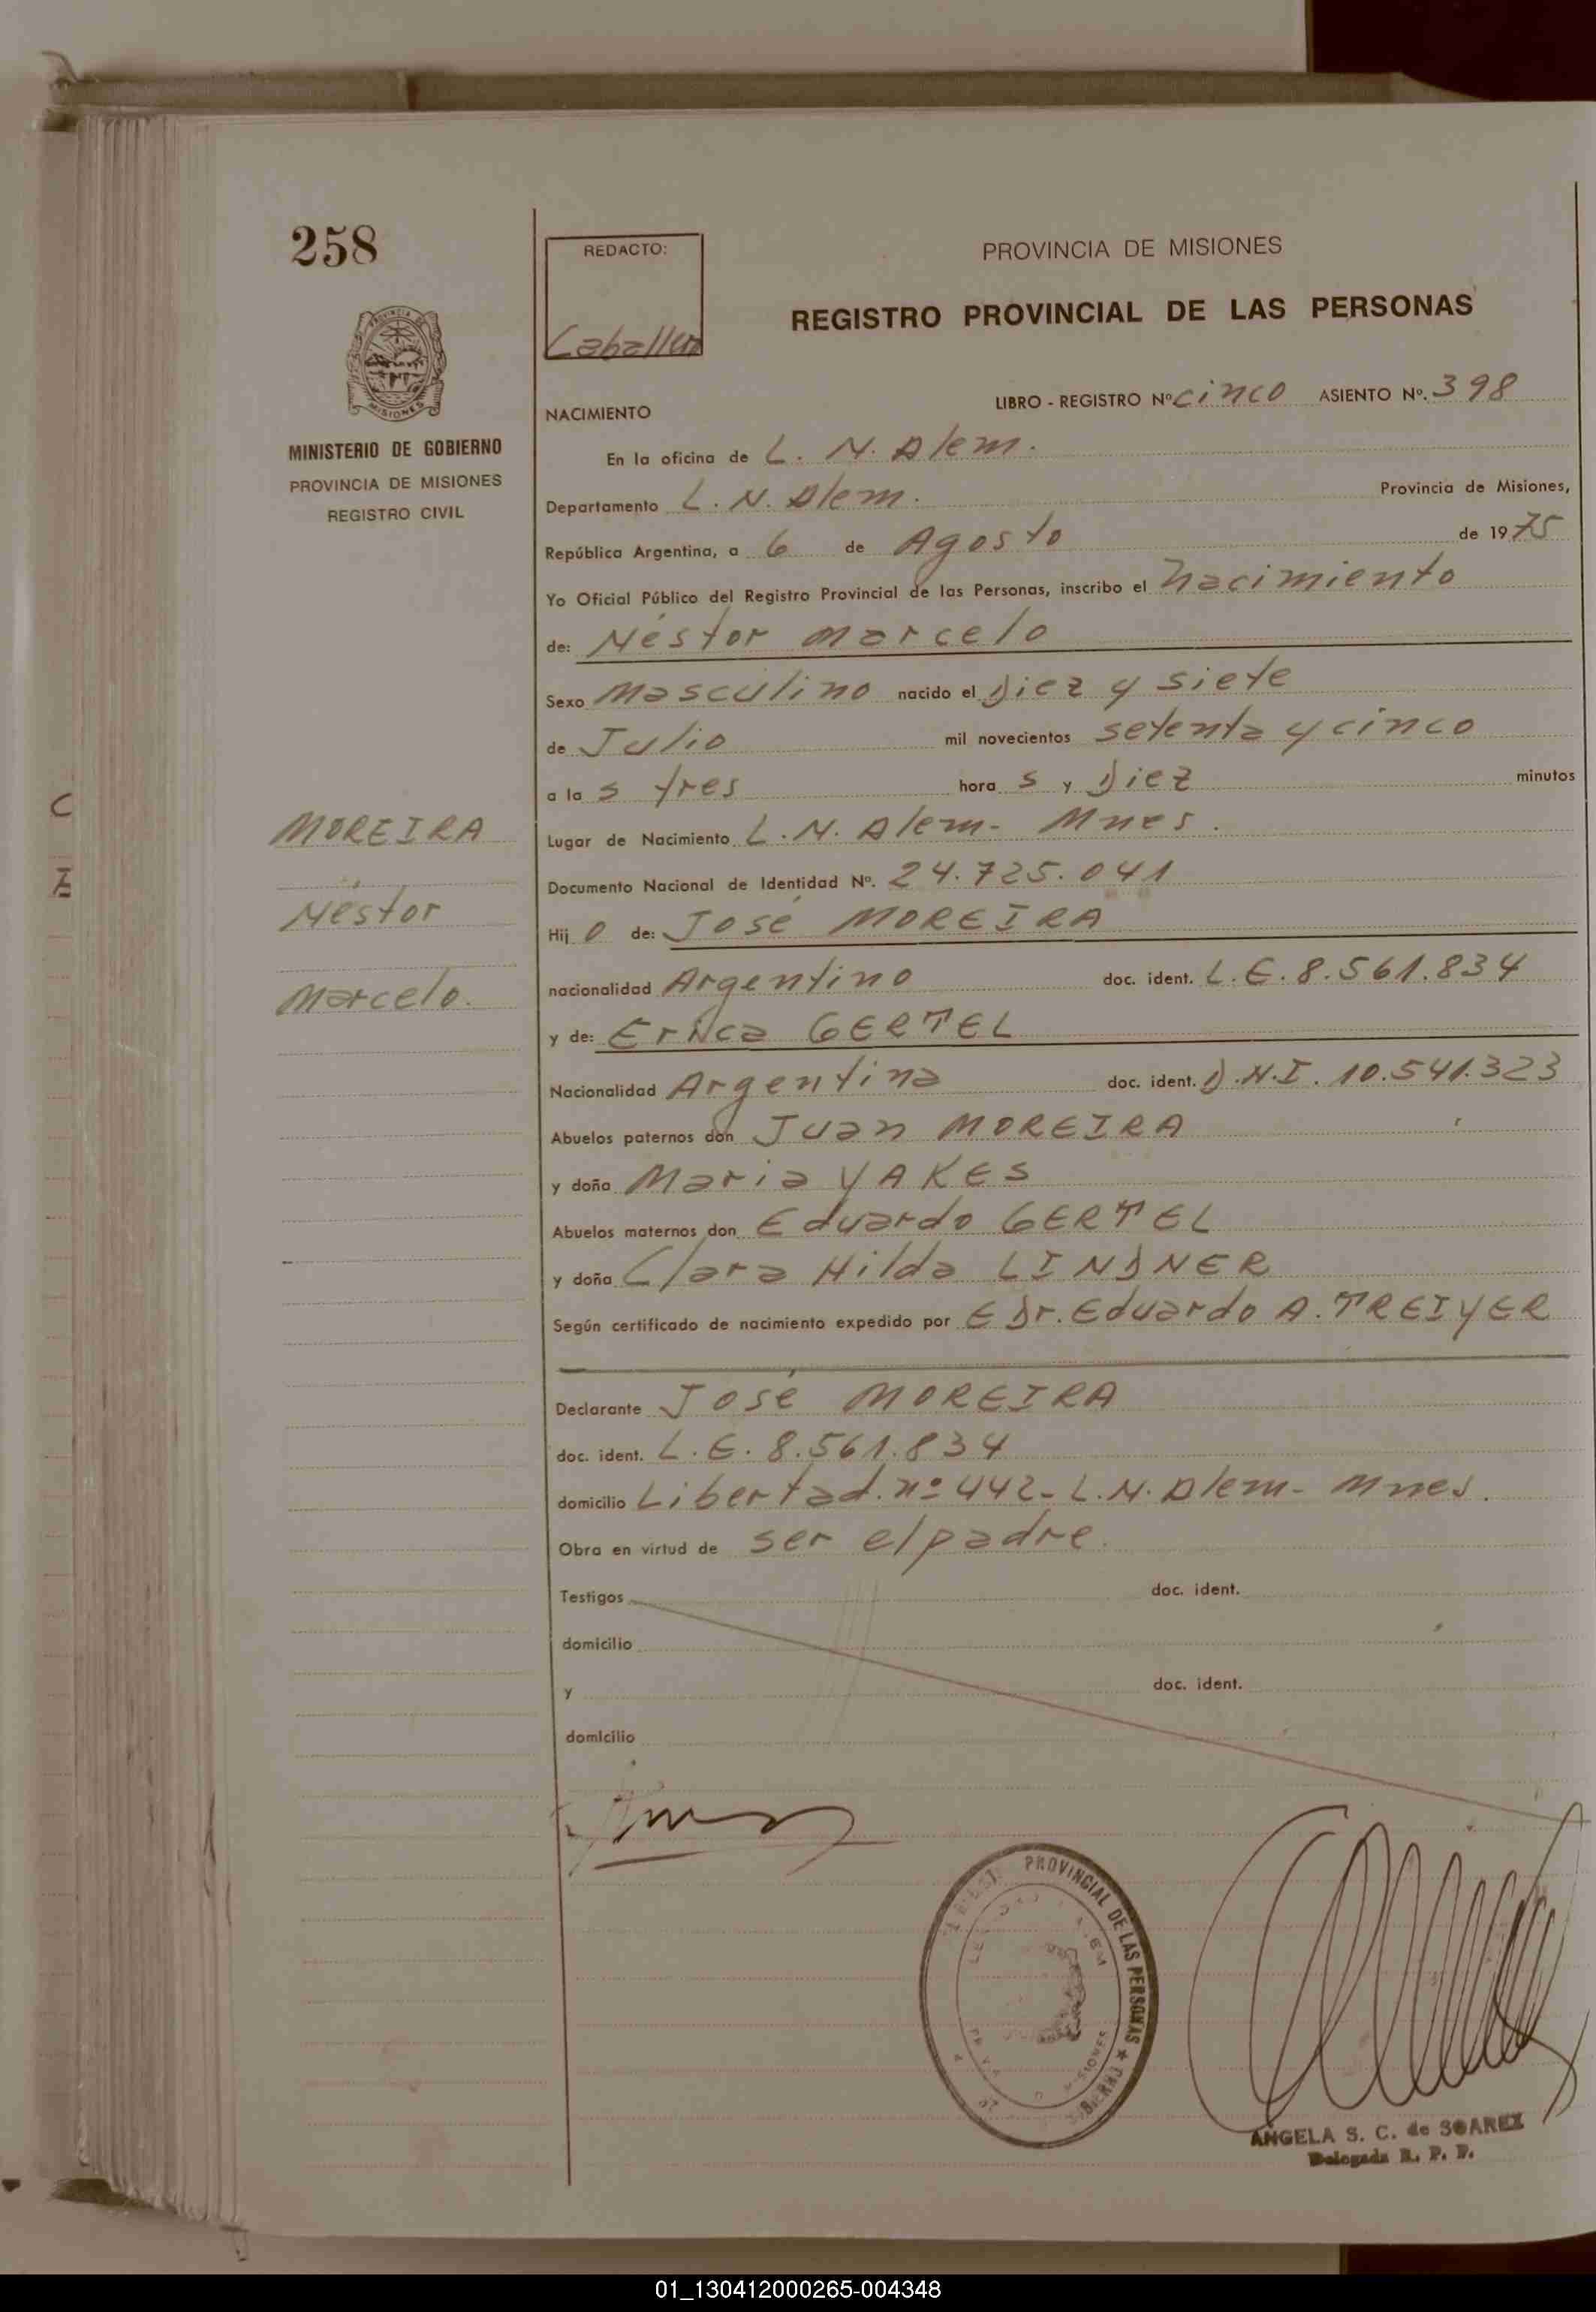 258
REDACTO:
Caballero
PROVINCIA DE MISIONES
REGISTRO PROVINCIAL DE LAS PERSONAS
PROVINCIA DE
MISIONES
MINISTERIO DE GOBIERNO
PROVINCIA DE MISIONES
REGISTRO CIVIL
NACIMIENTO LIBRO - REGISTRO Nº cinco ASIENTO Nº. 398
En la oficina de L. N. Alem.
Departamento L. N. Alem. Provincia de Misiones,
República Argentina, a 6 de Agosto de 1975
Yo Oficial Público del Registro Provincial de las Personas, inscribo el nacimiento
de: Néstor Marcelo
Sexo Masculino nacido el Diez y siete
de Julio mil novecientos setenta y cinco
a la s tres hora s y Diez minutos
Lugar de Nacimiento L. N. Alem - Mnes.
Documento Nacional de Identidad Nº. 24.725.041
Hij o de: José MOREIRA
nacionalidad Argentino doc. ident. L.E. 8.561.834
y de: Erica GERTEL
Nacionalidad Argentina doc. ident. D.N.I. 10.541.323
Abuelos paternos don Juan MOREIRA
y doña Maria YAKES
Abuelos maternos don Eduardo GERTEL
y doña Clara Hilda LINDNER
Según certificado de nacimiento expedido por E Dr. Eduardo A. TREIYER
Declarante José MOREIRA
doc. ident. L.E. 8.561.834
domicilio Libertad. nº 442 - L.N. Alem - Mnes.
Obra en virtud de ser el padre.
Testigos doc. ident.
domicilio
y doc. ident.
domicilio
MOREIRA
Néstor
Marcelo.
PROVINCIAL DE LAS PERSONAS
ANGELA S. C. de SOAREZ
Delegada R. P. P.
01_130412000265-004348